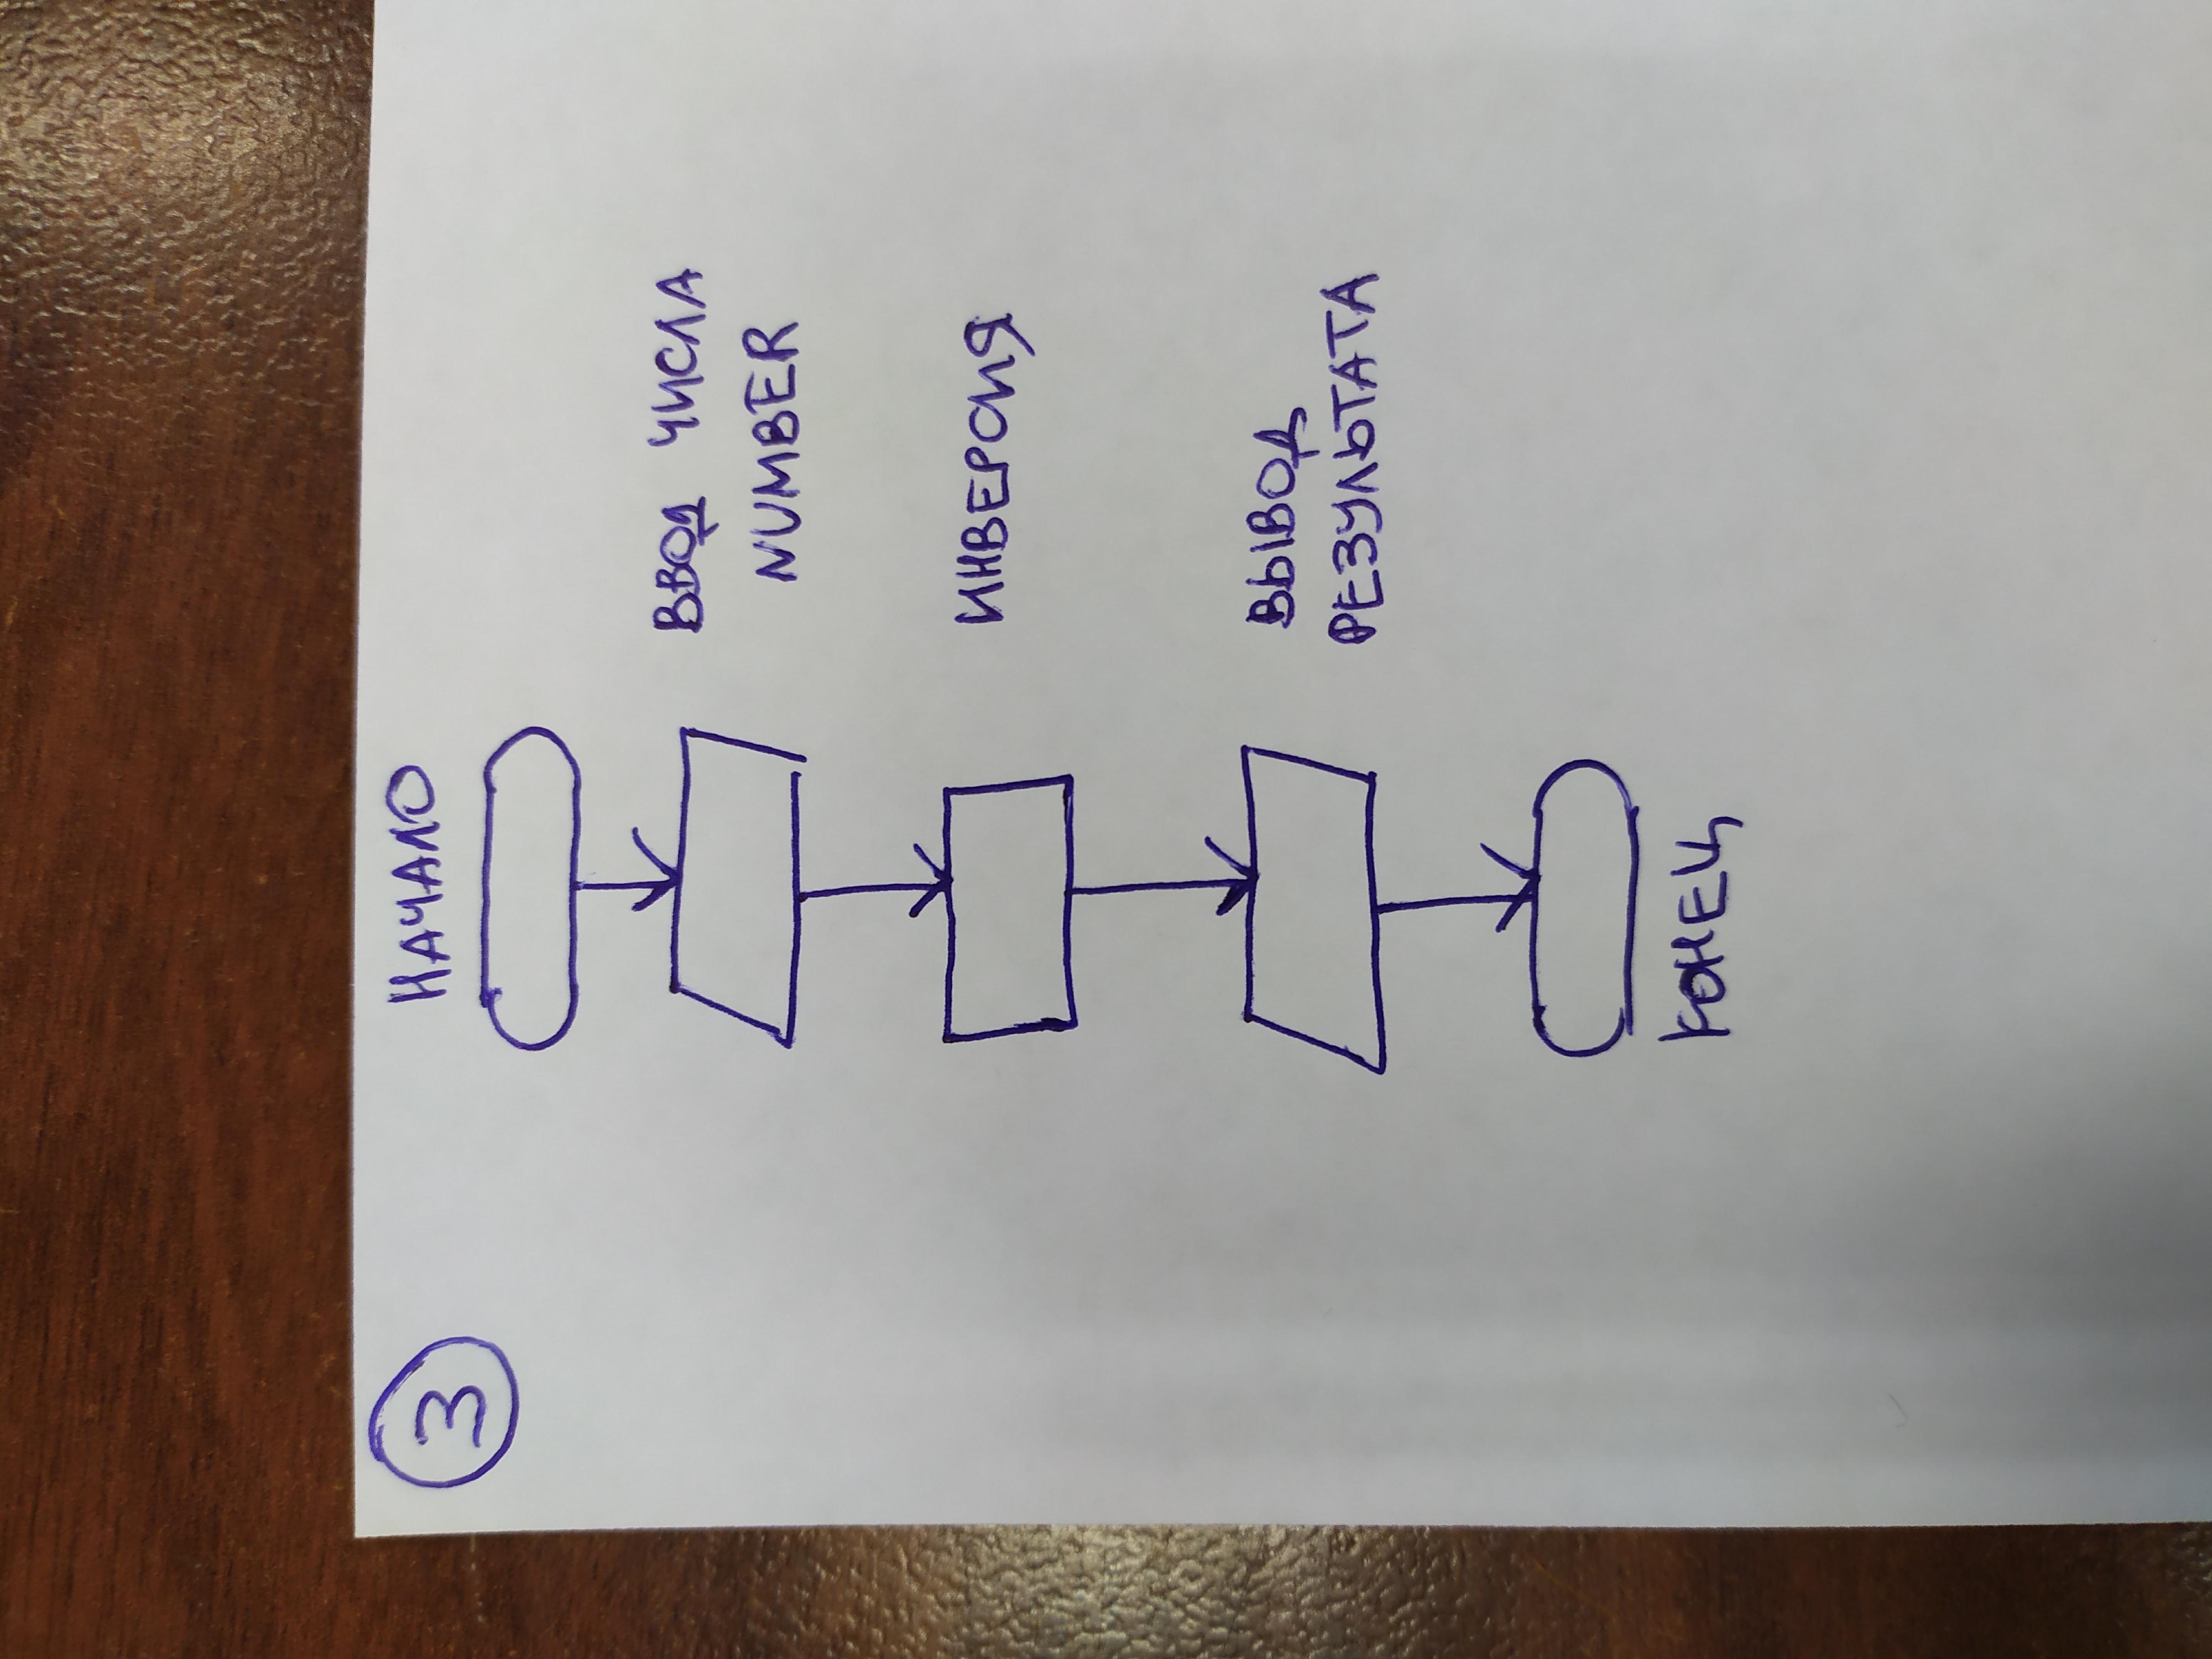 3
НАЧАЛО
ВВОД ЧИСЛА
NUMBER
ИНВЕРСИЯ
ВЫВОД
РЕЗУЛЬТАТА
КОНЕЦ